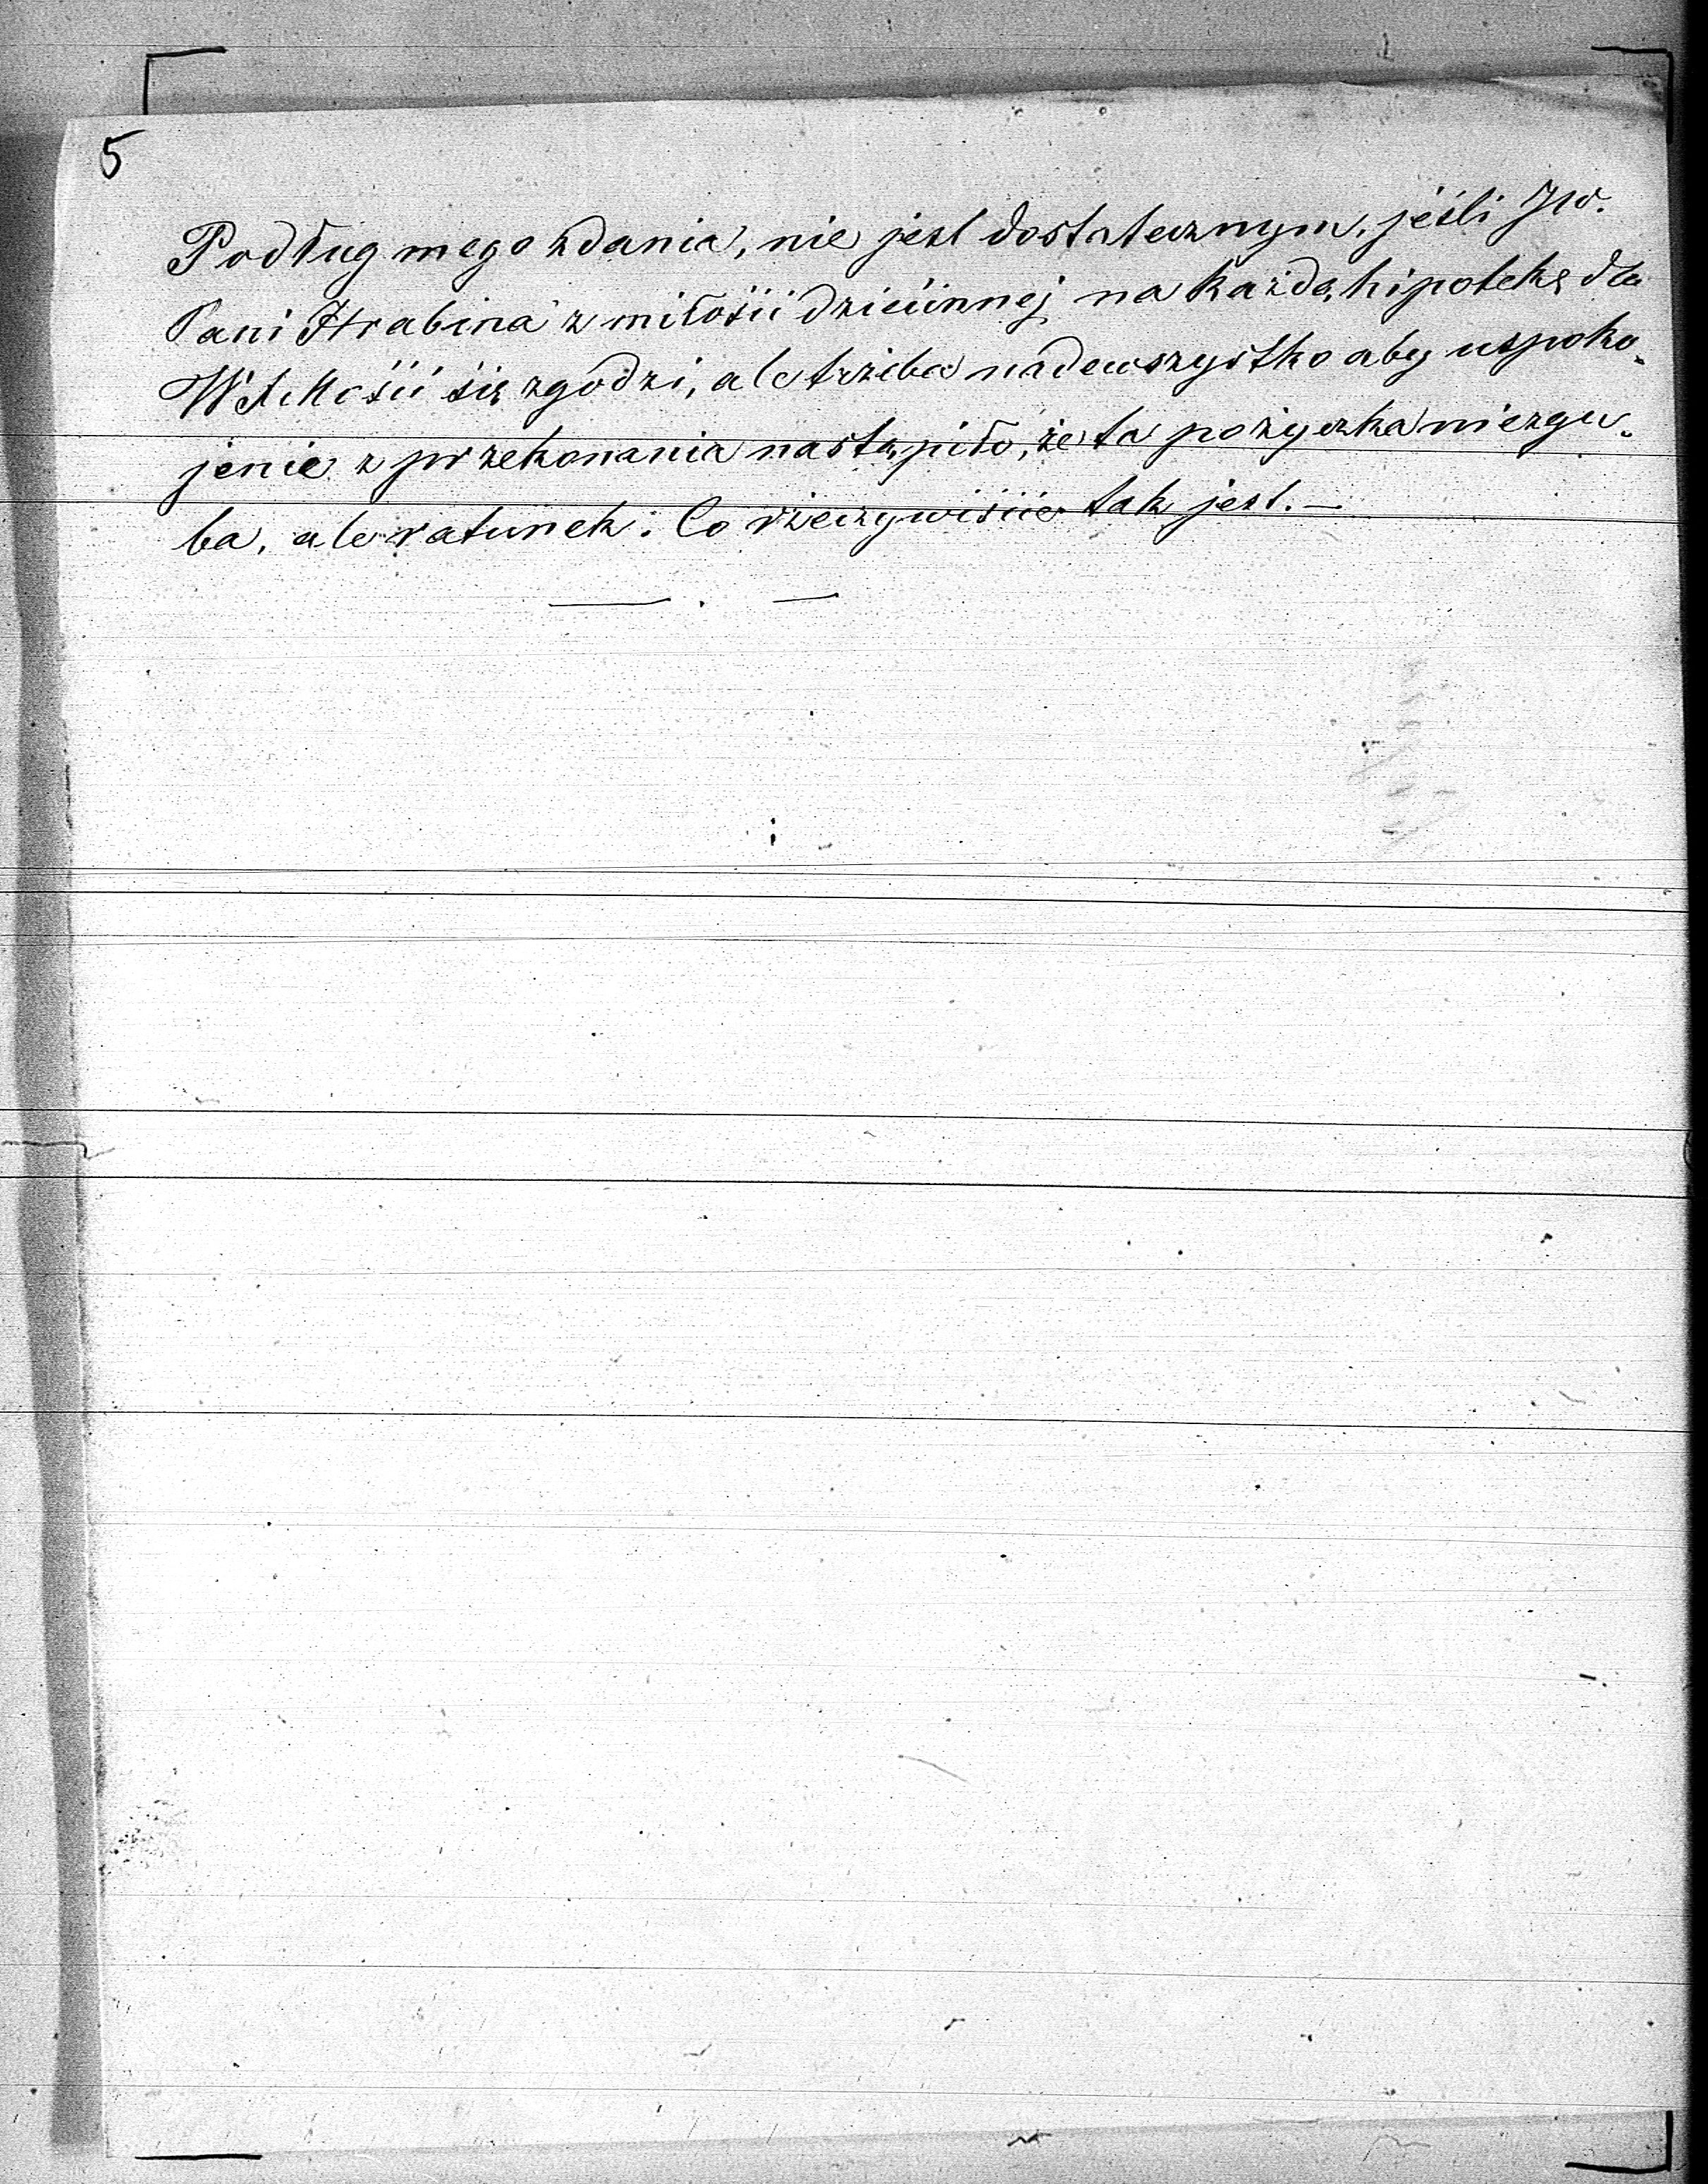 5
Podług mego zdania, nie jest dostatecznym, jeśli JW.
Pani Hrabina z miłości dziecinnej na każdą hipotekę dla
się zgodzi, ale trzeba nadewszystko aby uspoko-
jenie z przekonania nastąpiło, że ta pożyczka niezgu-
ba, ale ratunek. Co rzeczywiście tak jest. —